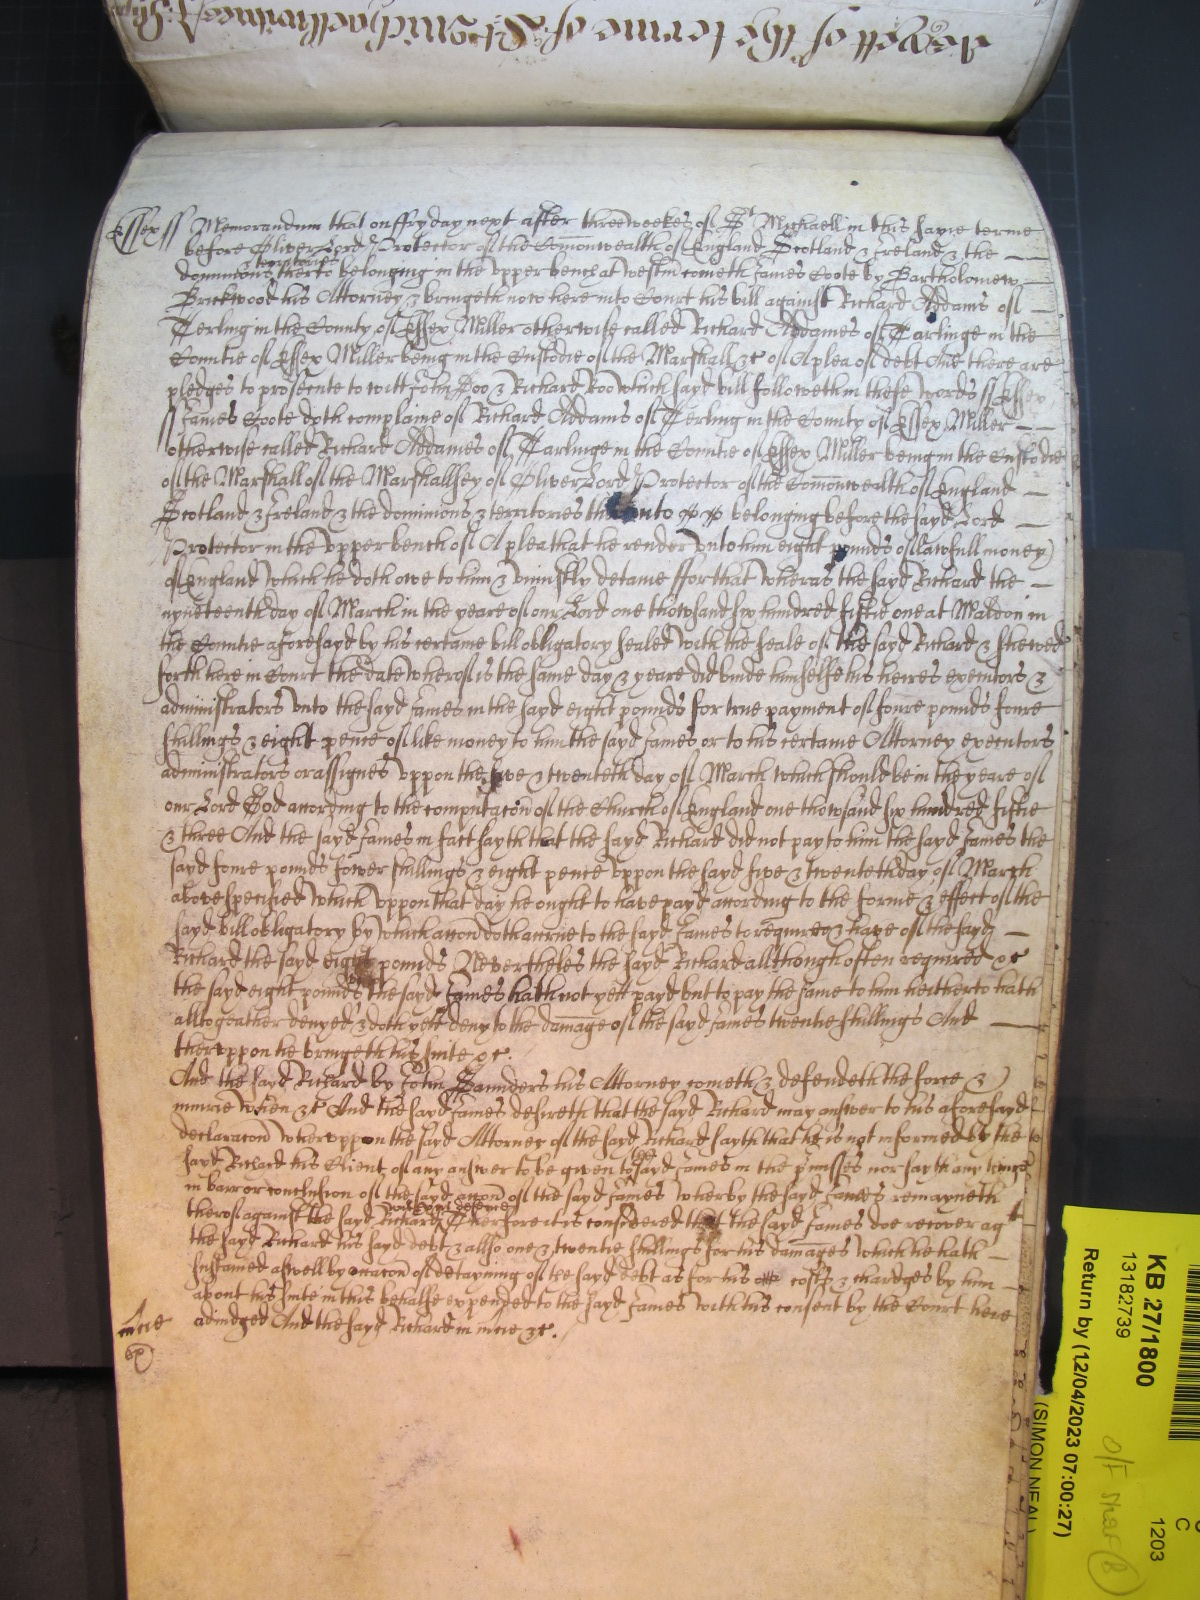 Jewell of the terme of St Michaell
Essex ss Memorandum that on ffryday next after three weekes of St Michaell in this same terme
before Oliver Lord Protector of the Comonwealth of England Scotland & Ireland & the
dominions & territories therto belonging in the upper bench at Westm cometh James Coote by Bartholomew
Brickwood his Attorney & bringeth now here into Court his bill against Richard Addams of
Terling in the County of Essex Miller otherwise called Richard Addames of Tarlinge in the
Countie of Essex Miller being in the Custodie of the Marshall &c of A plea of debt And there are
pledges to prosecute to witt John Doo & Richard Roo which sayd bill followeth in these words ss Essex
ss James Coote doth complaine of Richard Addams of Terling in the County of Essex Miller
otherwise called Richard Addames of Tarlinge in the Countie of Essex Miller being in the Custodie
of the Marshall of the Marshallsey of Oliver Lord Protector of the Comonwealth of England
Scotland & Ireland & the dominions & territories thereunto belonging before the sayd Lord
Protector in the upper bench of A plea that he render unto him eight pounds of lawfull money
of England which he doth owe to him & uniustly detaine ffor that wheras the sayd Richard the
nyneteenth day of March in the yeare of our Lord one thowsand six hundred fiftie one at Maldon in
the Countie aforesayd by his certaine bill obligatory sealed with the seale of the sayd Richard & shewed
forth here in Court the date wherof is the same day & yeare did binde himselfe his heires executors &
administrators unto the sayd James in the sayd eight pounds for true payment of foure pounds foure
shillings & eight pence of like money to him the sayd James or to his certaine Attorney executors
administrators or assignes uppon the five & twenteth day of March which should be in the yeare of
our Lord God according to the computacon of the Church of England one thowsand six hundred fiftie
& three And the sayd James in fact sayth that the sayd Richard did not pay to him the sayd James the
sayd foure pounds fower shillings & eight pence uppon the sayd five & twenteth day of March
above specified which uppon that day he ought to have payd according to the forme & effect of the
sayd bill obligatory by which accon doth accrue to the sayd James to require & have of the sayd
Richard the sayd eight pounds Nevertheles the sayd Richard allthough often required &c
the sayd eight pounds the sayd James hath not yett payd but to pay the same to him heitherto hath
alltogeather denyed & doth yett deny to the damage of the sayd James twentie shillings And
theruppon he bringeth his suite &c.
And the sayd Richard by John Saunders his Attorney cometh & defendeth the force &
iniurie when &c And the sayd James desireth that the sayd Richard may answer to his aforesayd
declaracon wheruppon the sayd Attorney of the sayd Richard sayth that he is not informed by the
sayd Richard his Client of any answer to be given to the sayd James in the pmisses nor sayth any thinge
in barr or conclusion of the sayd accon of the sayd James wherby the sayd James remayneth
therof against the sayd Richard without defence Therfore it is considered that the sayd James doe recover agt
the sayd Richard his sayd debt & allso one & twentie shillings for his damages which he hath
sustained aswell by occacon of detayning of the sayd debt as for his costs & chardges by him
about his suite in this behalfe expended to the sayd James with his consent by the Court here
adiudged And the sayd Richard in mcie &c.
mcie
KB 27/1800
13182739
Return by (12/04/2023 07:00:27)
(SIMON NEAL)
C
1203